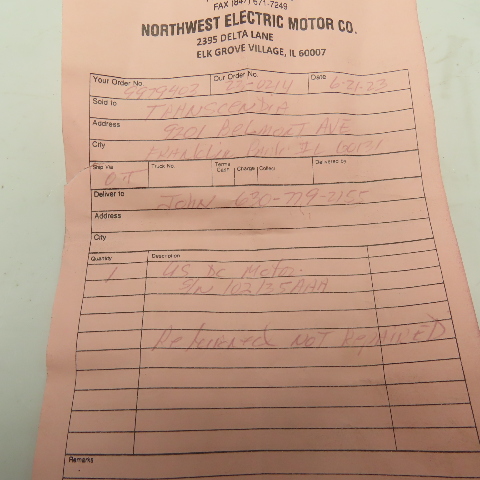 FAX (847) 671-7249
NORTHWEST ELECTRIC MOTOR CO.
2395 DELTA LANE
ELK GROVE VILLAGE, IL 60007
Your Order No. 9979402 Our Order No. 23-0214 Date 6-21-23
Sold to TRANSCENDIA
Address 9201 BELMONT AVE
City FRANKLIN PARK IL 60131
Ship Via O.T. Truck No. Terms Cash Charge Collect Delivered by
Deliver to JOHN 630-779-2155
Address
City
Quantity Description
1 US DC Motor
S/N 102135AAA
Returned NOT REPAIRED
Remarks